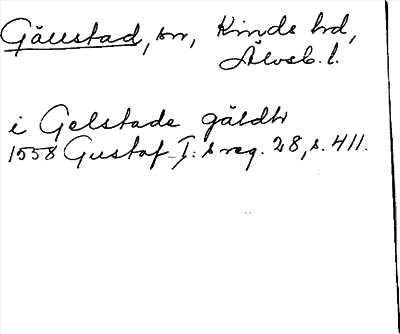 Gällstad, sn, Kinds hd,
Älvsb. l.
i Gelstade gäldh
1558 Gustaf I:s reg. 28, s. 411.